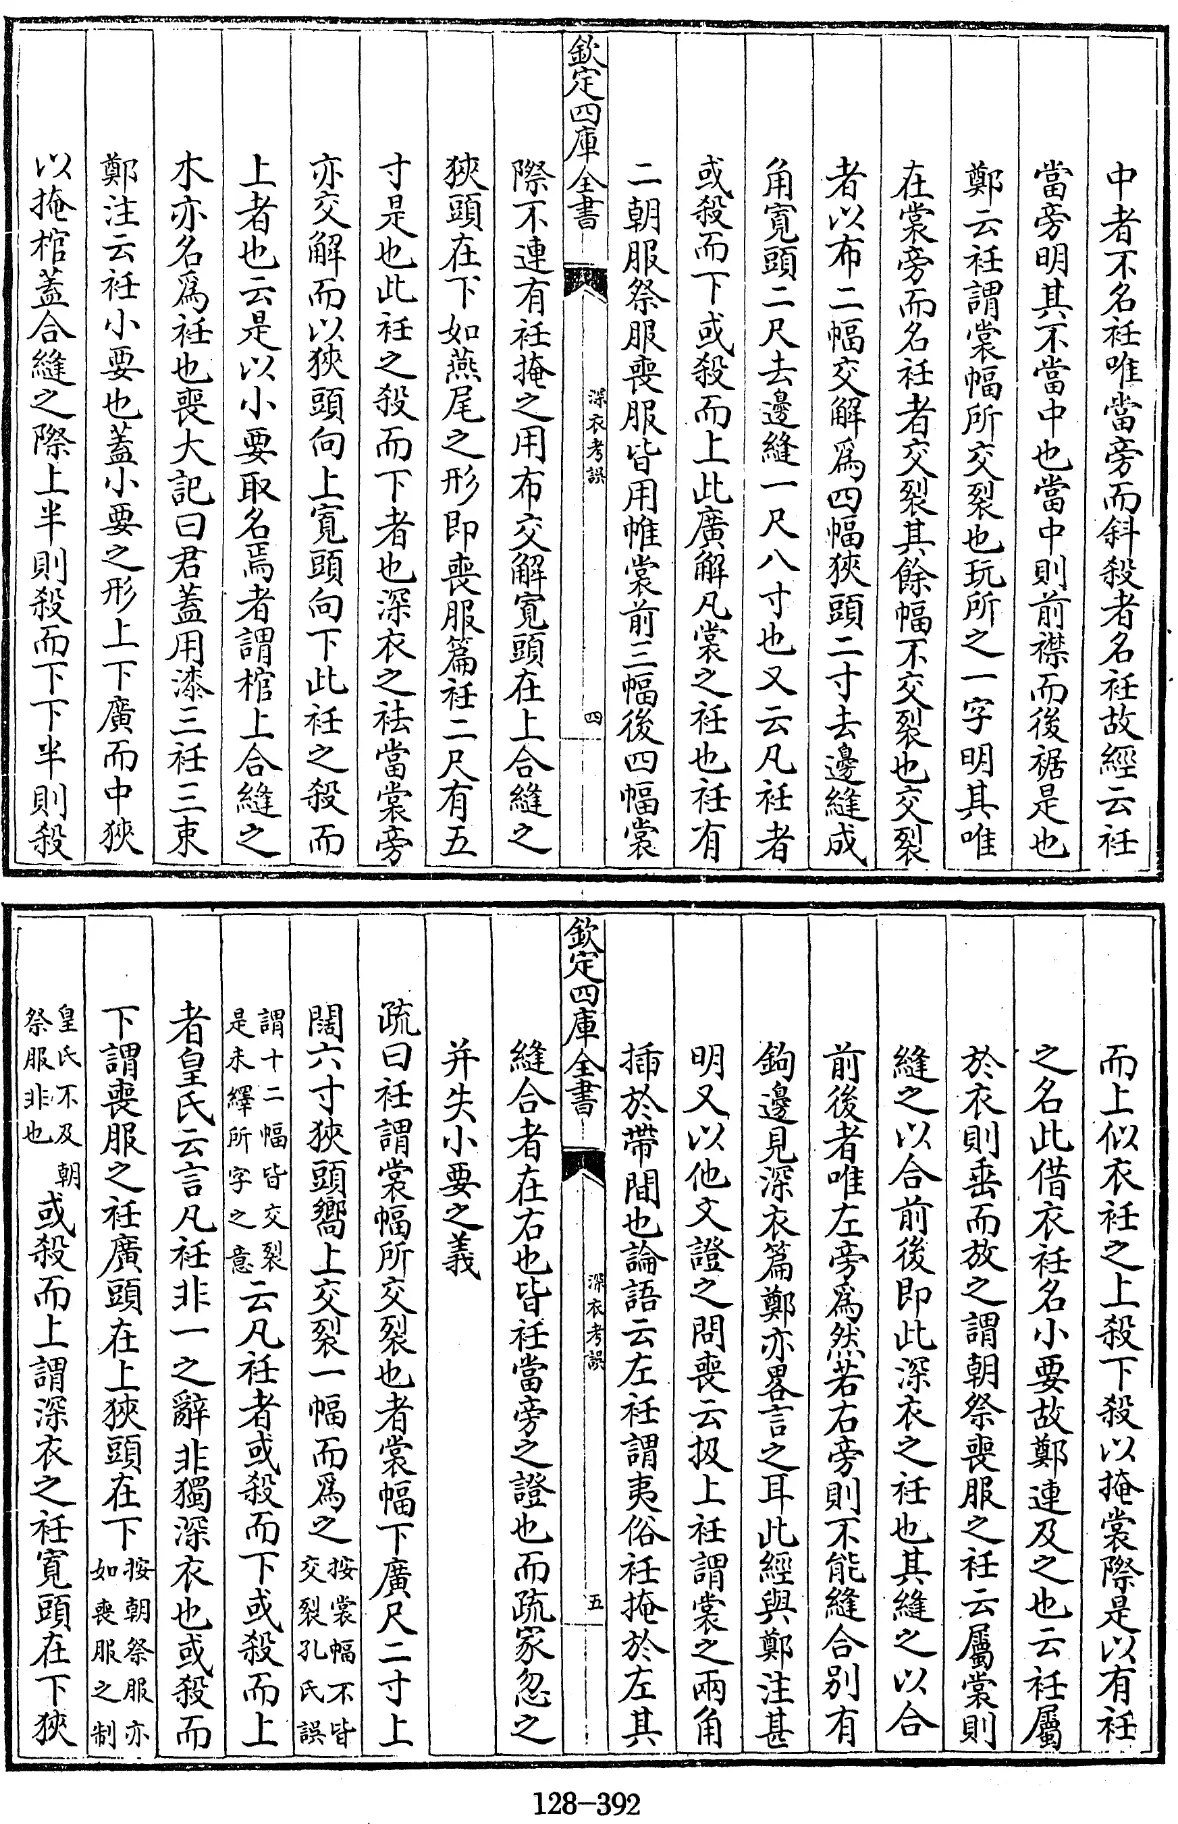 中者不名衽唯當旁而斜殺者名衽故經云衽
當旁明其不當中也當中則前襟而後裾是也
鄭云衽謂裳幅所交裂也玩所之一字明其唯
在裳旁而名衽者交裂其餘幅不交裂也交裂
者以布二幅交解為四幅狹頭二寸去邊縫成
角寬頭二尺去邊縫一尺八寸也又云凡衽者
或殺而下或殺而上此廣解凡裳之衽也衽有
二朝服祭服喪服皆用帷裳前三幅後四幅裳
欽定四庫全書
深衣考誤
四
際不連有衽掩之用布交解寬頭在上合縫之
狹頭在下如燕尾之形即喪服篇衽二尺有五
寸是也此衽之殺而下者也深衣之袪當裳旁
亦交解而以狹頭向上寬頭向下此衽之殺而
上者也云是以小要取名焉者謂棺上合縫之
木亦名為衽也喪大記曰君蓋用漆三衽三束
鄭注云衽小要也蓋小要之形上下廣而中狹
以掩棺蓋合縫之際上半則殺而下下半則殺
而上似衣衽之上殺下殺以掩裳際是以有衽
之名此借衣衽名小要故鄭連及之也云衽屬
於衣則垂而放之謂朝祭喪服之衽云屬裳則
縫之以合前後即此深衣之衽也其縫之以合
前後者唯左旁為然若右旁則不能縫合別有
鉤邊見深衣篇鄭亦畧言之耳此經與鄭注甚
明又以他文證之問喪云扱上衽謂裳之兩角
插於帶間也論語云左衽謂夷俗衽掩於左其
欽定四庫全書
深衣考誤
五
縫合者在右也皆衽當旁之證也而疏家忽之
并失小要之義
疏曰衽謂裳幅所交裂也者裳幅下廣尺二寸上
闊六寸狹頭嚮上交裂一幅而為之按裳幅不皆交裂孔氏誤
謂十二幅皆交裂是未繹所字之意云凡衽者或殺而下或殺而上
者皇氏云言凡衽非一之辭非獨深衣也或殺而
下謂喪服之衽廣頭在上狹頭在下按朝祭服亦如喪服之制
皇氏不及朝祭服非也或殺而上謂深衣之衽寬頭在下狹
128-392